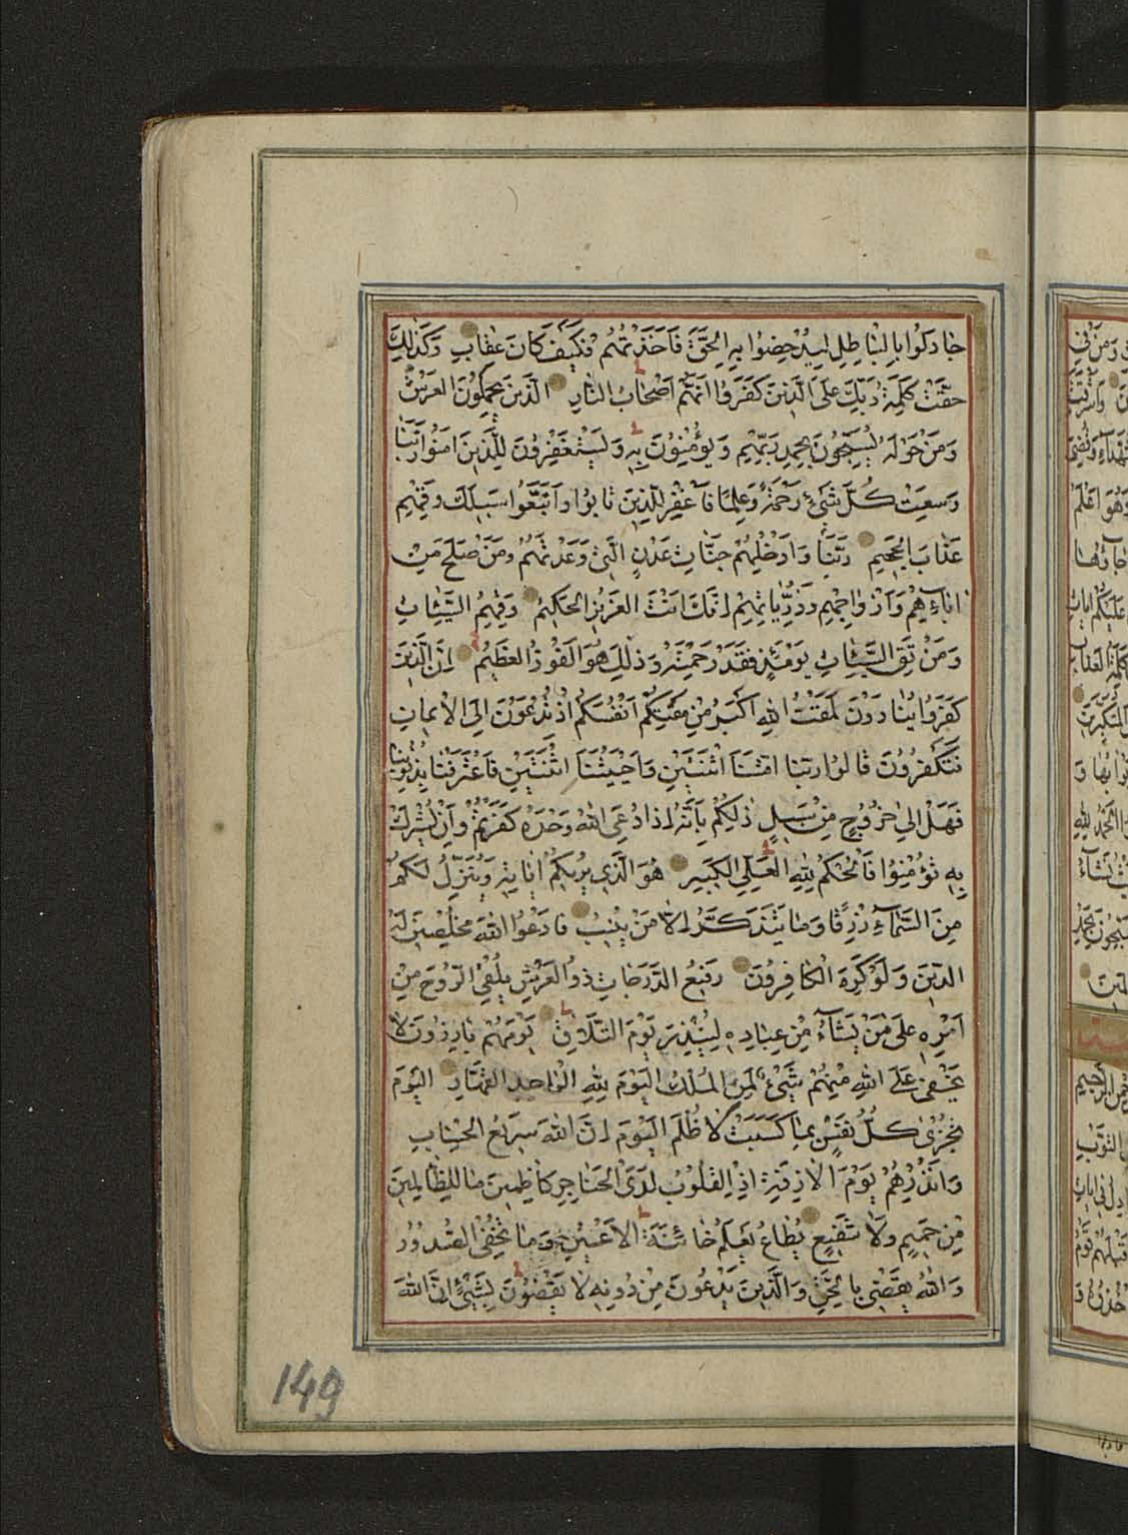 جَادَلُوا بِالْبَاطِلِ لِيُدْحِضُوا بِهِ الْحَقَّ فَاَخَذْتُهُمْ فَكَيْفَ كَانَ عِقَابِ وَكَذٰلِكَ
حَقَّتْ كَلِمَةُ رَبِّكَ عَلَى الَّذِينَ كَفَرُوا اَنَّهُمْ اَصْحَابُ النَّارِ اَلَّذِينَ يَحْمِلُونَ الْعَرْشَ
وَمَنْ حَوْلَهُ يُسَبِّحُونَ بِحَمْدِ رَبِّهِمْ وَيُؤْمِنُونَ بِهِ وَيَسْتَغْفِرُونَ لِلَّذِينَ اٰمَنُوا رَبَّنَا
وَسِعْتَ كُلَّ شَيْءٍ رَحْمَةً وَعِلْمًا فَاغْفِرْ لِلَّذِينَ تَابُوا وَاتَّبَعُوا سَبِيلَكَ وَقِهِمْ
عَذَابَ الْجَحِيمِ رَبَّنَا وَاَدْخِلْهُمْ جَنَّاتِ عَدْنٍ الَّتِي وَعَدْتَهُمْ وَمَنْ صَلَحَ مِنْ
اٰبَائِهِمْ وَاَزْوَاجِهِمْ وَذُرِّيَّاتِهِمْ اِنَّكَ اَنْتَ الْعَزِيزُ الْحَكِيمُ وَقِهِمُ السَّيِّئَاتِ
وَمَنْ تَقِ السَّيِّئَاتِ يَوْمَئِذٍ فَقَدْ رَحِمْتَهُ وَذٰلِكَ هُوَ الْفَوْزُ الْعَظِيمُ اِنَّ الَّذِينَ
كَفَرُوا يُنَادَوْنَ لَمَقْتُ اللهِ اَكْبَرُ مِنْ مَقْتِكُمْ اَنْفُسَكُمْ اِذْ تُدْعَوْنَ اِلَى الْاِيمَانِ
فَتَكْفُرُونَ قَالُوا رَبَّنَا اَمَتَّنَا اثْنَتَيْنِ وَاَحْيَيْتَنَا اثْنَتَيْنِ فَاعْتَرَفْنَا بِذُنُوبِنَا
فَهَلْ اِلٰى خُرُوجٍ مِنْ سَبِيلٍ ذٰلِكُمْ بِاَنَّهُ اِذَا دُعِيَ اللهُ وَحْدَهُ كَفَرْتُمْ وَاِنْ يُشْرَكْ
بِهِ تُؤْمِنُوا فَالْحُكْمُ لِلّٰهِ الْعَلِيِّ الْكَبِيرِ هُوَ الَّذِي يُرِيكُمْ اٰيَاتِهِ وَيُنَزِّلُ لَكُمْ
مِنَ السَّمَاءِ رِزْقًا وَمَا يَتَذَكَّرُ اِلَّا مَنْ يُنِيبُ فَادْعُوا اللهَ مُخْلِصِينَ لَهُ
الدِّينَ وَلَوْ كَرِهَ الْكَافِرُونَ رَفِيعُ الدَّرَجَاتِ ذُو الْعَرْشِ يُلْقِي الرُّوحَ مِنْ
اَمْرِهِ عَلٰى مَنْ يَشَاءُ مِنْ عِبَادِهِ لِيُنْذِرَ يَوْمَ التَّلَاقِ يَوْمَ هُمْ بَارِزُونَ لَا
يَخْفٰى عَلَى اللهِ مِنْهُمْ شَيْءٌ لِمَنِ الْمُلْكُ الْيَوْمَ لِلّٰهِ الْوَاحِدِ الْقَهَّارِ اَلْيَوْمَ
تُجْزٰى كُلُّ نَفْسٍ بِمَا كَسَبَتْ لَا ظُلْمَ الْيَوْمَ اِنَّ اللهَ سَرِيعُ الْحِسَابِ
وَاَنْذِرْهُمْ يَوْمَ الْاٰزِفَةِ اِذِ الْقُلُوبُ لَدَى الْحَنَاجِرِ كَاظِمِينَ مَا لِلظَّالِمِينَ
مِنْ حَمِيمٍ وَلَا شَفِيعٍ يُطَاعُ يَعْلَمُ خَائِنَةَ الْاَعْيُنِ وَمَا تُخْفِي الصُّدُورُ
وَاللهُ يَقْضِي بِالْحَقِّ وَالَّذِينَ يَدْعُونَ مِنْ دُونِهِ لَا يَقْضُونَ بِشَيْءٍ اِنَّ اللهَ
149